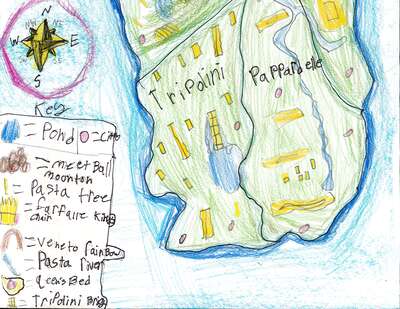 N
W E
S
Tripolini
Pappardelle
Key
= Pond = City
= meet Ball
moonton
= Pasta tree
= farfalle King
= Veneto rainbow
= Pasta river
= Bed
= Tripolini